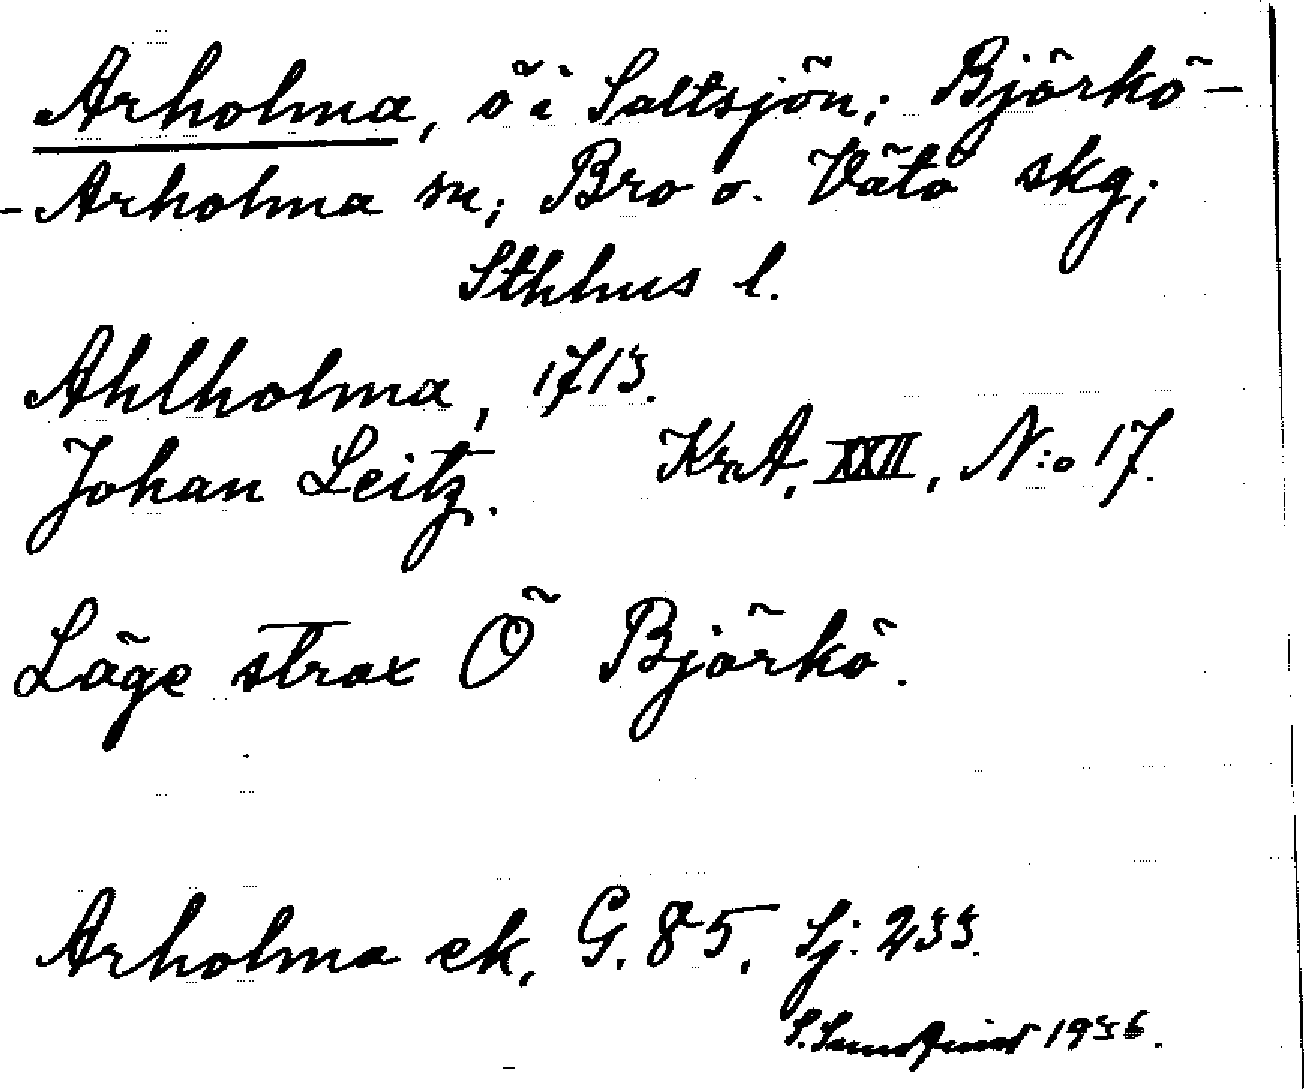 Arholma, ö i Saltsjön; Björkö-
-Arholma sn; Bro o. Vätö skg;
Sthlms l.
Ahlholma, 1713.
Johan Leitz. KrA. XXII, N:o 17.
Läge strax Ö Björkö.
Arholma ek, G. 85, Sj: 233.
S. Sundqvist 1936.